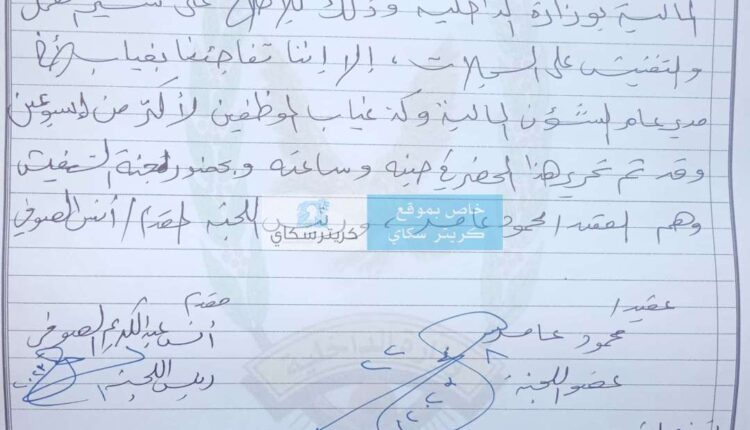 المالية بوزارة الداخلية وذلك للإطلاع على سير عمل
والتفتيش على السجلات، إلا إننا تفاجئنا بغياب الأخ
مدير عام الشؤن المالية وكذ غياب الموظفين لأكثر من إسبوعين
وقد تم تحرير هذا المحضر في حينه وساعته وبحضور لجنة التفتيش
وهم العقيد / محمود عامر ورئيس اللجنه المقدم / أنس الصوفي
خاص بموقع
كريتر سكاي
كريتر سكاي
عقيد /
محمود عامر
عضو اللجنة
مقدم /
أنس عبدالكريم الصوفي
رئيس اللجنة